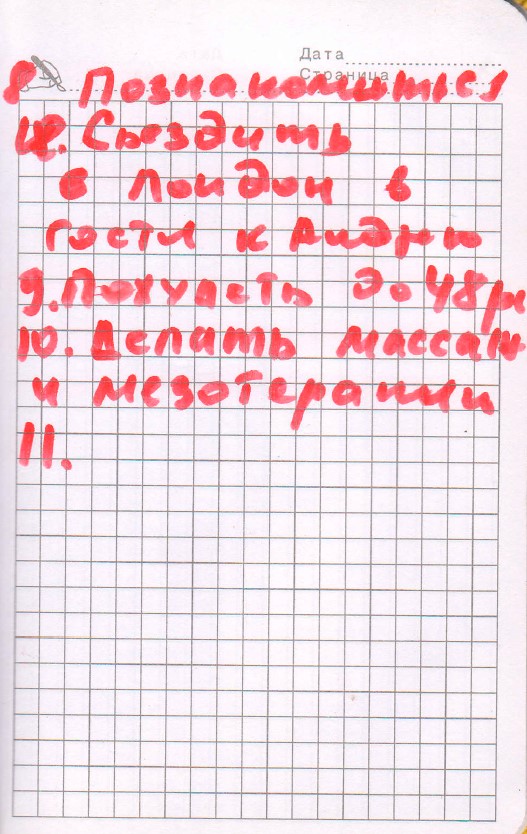 Дата
Страница
8 Познакомится
18. Съездить
в Лондон в
гости к Андрею
9. Похудеть до 48 р
10. Делать массаж
и мезотерапии
11.